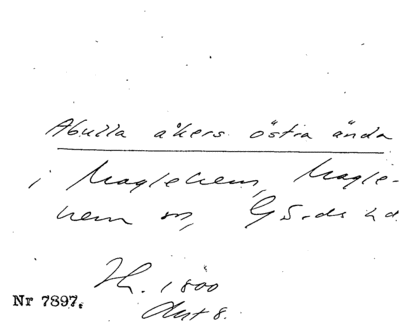 Abulla åkers östra ända
i Maglehem, Magle-
hem sn, Gärds hd.
Th. 1800
Akt 8.
Nr 7897.